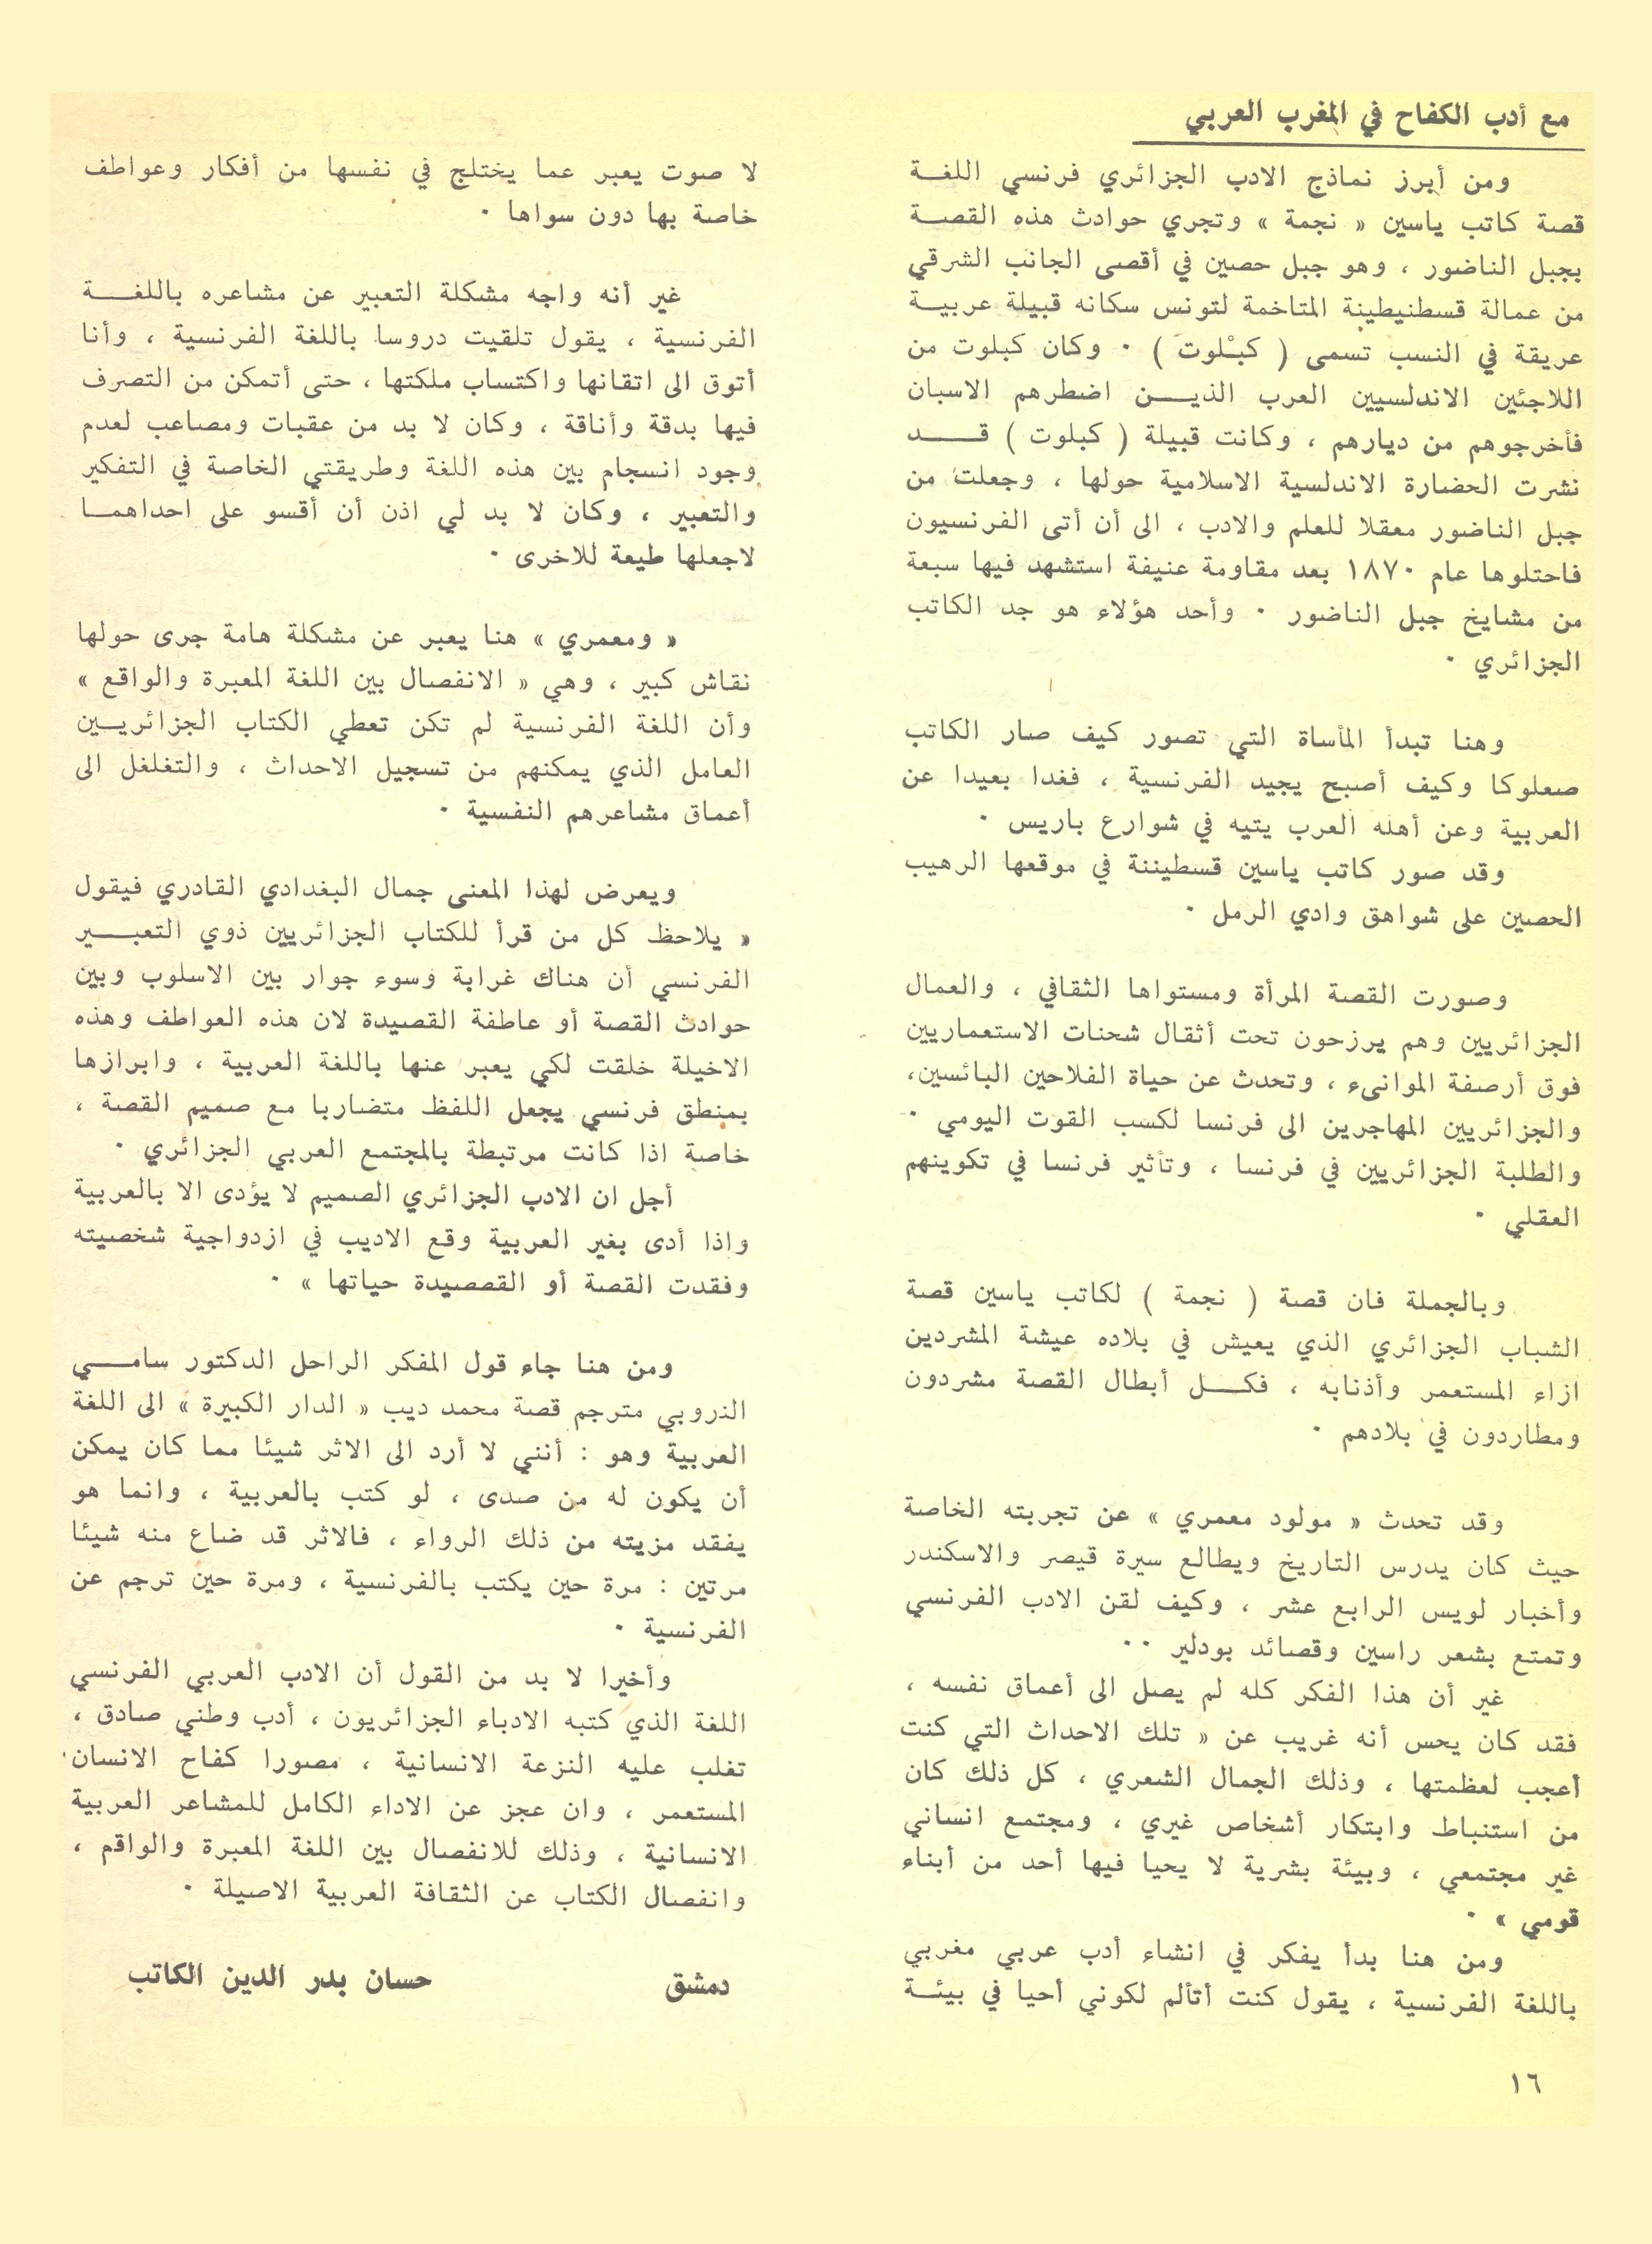 مع أدب الكفاح في المغرب العربي
ومن أبرز نماذج الادب الجزائري فرنسي اللغة
قصة كاتب ياسين « نجمة » وتجري حوادث هذه القصة
بجبل الناضور ، وهو جبل حصين في أقصى الجانب الشرقي
من عمالة قسطنيطينة المتاخمة لتونس سكانه قبيلة عربية
عريقة في النسب تسمى ( كبْلوت ) ٠ وكان كبلوت من
اللاجئين الاندلسيين العرب الذين اضطرهم الاسبان
فأخرجوهم من ديارهم ، وكانت قبيلة ( كبلوت ) قد
نشرت الحضارة الاندلسية الاسلامية حولها ، وجعلت من
جبل الناضور معقلا للعلم والادب ، الى أن أتى الفرنسيون
فاحتلوها عام ١٨٧٠ بعد مقاومة عنيفة استشهد فيها سبعة
من مشايخ جبل الناضور ٠ وأحد هؤلاء هو جد الكاتب
الجزائري ٠
وهنا تبدأ المأساة التي تصور كيف صار الكاتب
صعلوكا وكيف أصبح يجيد الفرنسية ، فغدا بعيدا عن
العربية وعن أهله العرب يتيه في شوارع باريس ٠
وقد صور كاتب ياسين قسطيننة في موقعها الرهيب
الحصين على شواهق وادي الرمل ٠
وصورت القصة المرأة ومستواها الثقافي ، والعمال
الجزائريين وهم يرزحون تحت أثقال شحنات الاستعماريين
فوق أرصفة الموانىء ، وتحدث عن حياة الفلاحين البائسين،
والجزائريين المهاجرين الى فرنسا لكسب القوت اليومي ٠
والطلبة الجزائريين في فرنسا ، وتأثير فرنسا في تكوينهم
العقلي ٠
وبالجملة فان قصة ( نجمة ) لكاتب ياسين قصة
الشباب الجزائري الذي يعيش في بلاده عيشة المشردين
ازاء المستعمر وأذنابه ، فكل أبطال القصة مشردون
ومطاردون في بلادهم ٠
وقد تحدث « مولود معمري » عن تجربته الخاصة
حيث كان يدرس التاريخ ويطالع سيرة قيصر والاسكندر
وأخبار لويس الرابع عشر ، وكيف لقن الادب الفرنسي
وتمتع بشعر راسين وقصائد بودلير ٠٠
غير أن هذا الفكر كله لم يصل الى أعماق نفسه ،
فقد كان يحس أنه غريب عن « تلك الاحداث التي كنت
أعجب لعظمتها ، وذلك الجمال الشعري ، كل ذلك كان
من استنباط وابتكار أشخاص غيري ، ومجتمع انساني
غير مجتمعي ، وبيئة بشرية لا يحيا فيها أحد من أبناء
قومي » ٠
ومن هنا بدأ يفكر في انشاء أدب عربي مغربي
باللغة الفرنسية ، يقول كنت أتألم لكوني أحيا في بيئة
لا صوت يعبر عما يختلج في نفسها من أفكار وعواطف
خاصة بها دون سواها ٠
غير أنه واجه مشكلة التعبير عن مشاعره باللغة
الفرنسية ، يقول تلقيت دروسا باللغة الفرنسية ، وأنا
أتوق الى اتقانها واكتساب ملكتها ، حتى أتمكن من التصرف
فيها بدقة وأناقة ، وكان لا بد من عقبات ومصاعب لعدم
وجود انسجام بين هذه اللغة وطريقتي الخاصة في التفكير
والتعبير ، وكان لا بد لي اذن أن أقسو على احداهما
لاجعلها طيعة للاخرى ٠
« ومعمري » هنا يعبر عن مشكلة هامة جرى حولها
نقاش كبير ، وهي « الانفصال بين اللغة المعبرة والواقع »
وأن اللغة الفرنسية لم تكن تعطي الكتاب الجزائريين
العامل الذي يمكنهم من تسجيل الاحداث ، والتغلغل الى
أعماق مشاعرهم النفسية ٠
ويعرض لهذا المعنى جمال البغدادي القادري فيقول
« يلاحظ كل من قرأ للكتاب الجزائريين ذوي التعبير
الفرنسي أن هناك غرابة وسوء جوار بين الاسلوب وبين
حوادث القصة أو عاطفة القصيدة لان هذه العواطف وهذه
الاخيلة خلقت لكي يعبر عنها باللغة العربية ، وابرازها
بمنطق فرنسي يجعل اللفظ متضاربا مع صميم القصة ،
خاصة اذا كانت مرتبطة بالمجتمع العربي الجزائري ٠
أجل ان الادب الجزائري الصميم لا يؤدى الا بالعربية
واذا أدى بغير العربية وقع الاديب في ازدواجية شخصيته
وفقدت القصة أو القصصيدة حياتها » ٠
ومن هنا جاء قول المفكر الراحل الدكتور سامي
الدروبي مترجم قصة محمد ديب « الدار الكبيرة » الى اللغة
العربية وهو : أنني لا أرد الى الاثر شيئا مما كان يمكن
أن يكون له من صدى ، لو كتب بالعربية ، وانما هو
يفقد مزيته من ذلك الرواء ، فالاثر قد ضاع منه شيئا
مرتين : مرة حين يكتب بالفرنسية ، ومرة حين ترجم عن
الفرنسية ٠
وأخيرا لا بد من القول أن الادب العربي الفرنسي
اللغة الذي كتبه الادباء الجزائريون ، أدب وطني صادق ،
تغلب عليه النزعة الانسانية ، مصورا كفاح الانسان
المستعمر ، وان عجز عن الاداء الكامل للمشاعر العربية
الانسانية ، وذلك للانفصال بين اللغة المعبرة والواقع ،
وانفصال الكتاب عن الثقافة العربية الاصيلة ٠
دمشق حسان بدر الدين الكاتب
١٦